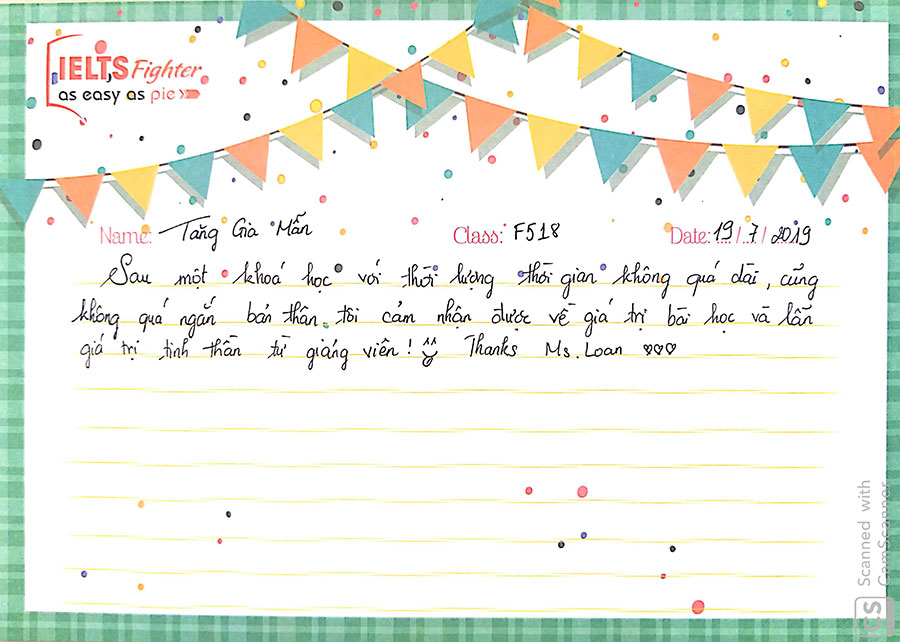 IELTS Fighter
as easy as pie
Name: Tăng Gia Mẫn Class: F518 Date: 19/7/2019
Sau một khoá học với thời lượng thời gian không quá dài, cũng
không quá ngắn bản thân tôi cảm nhận được về giá trị bài học và lẫn
giá trị tinh thần từ giảng viên! Thanks Ms. Loan ♡♡♡
Scanned with
CamScanner
CS